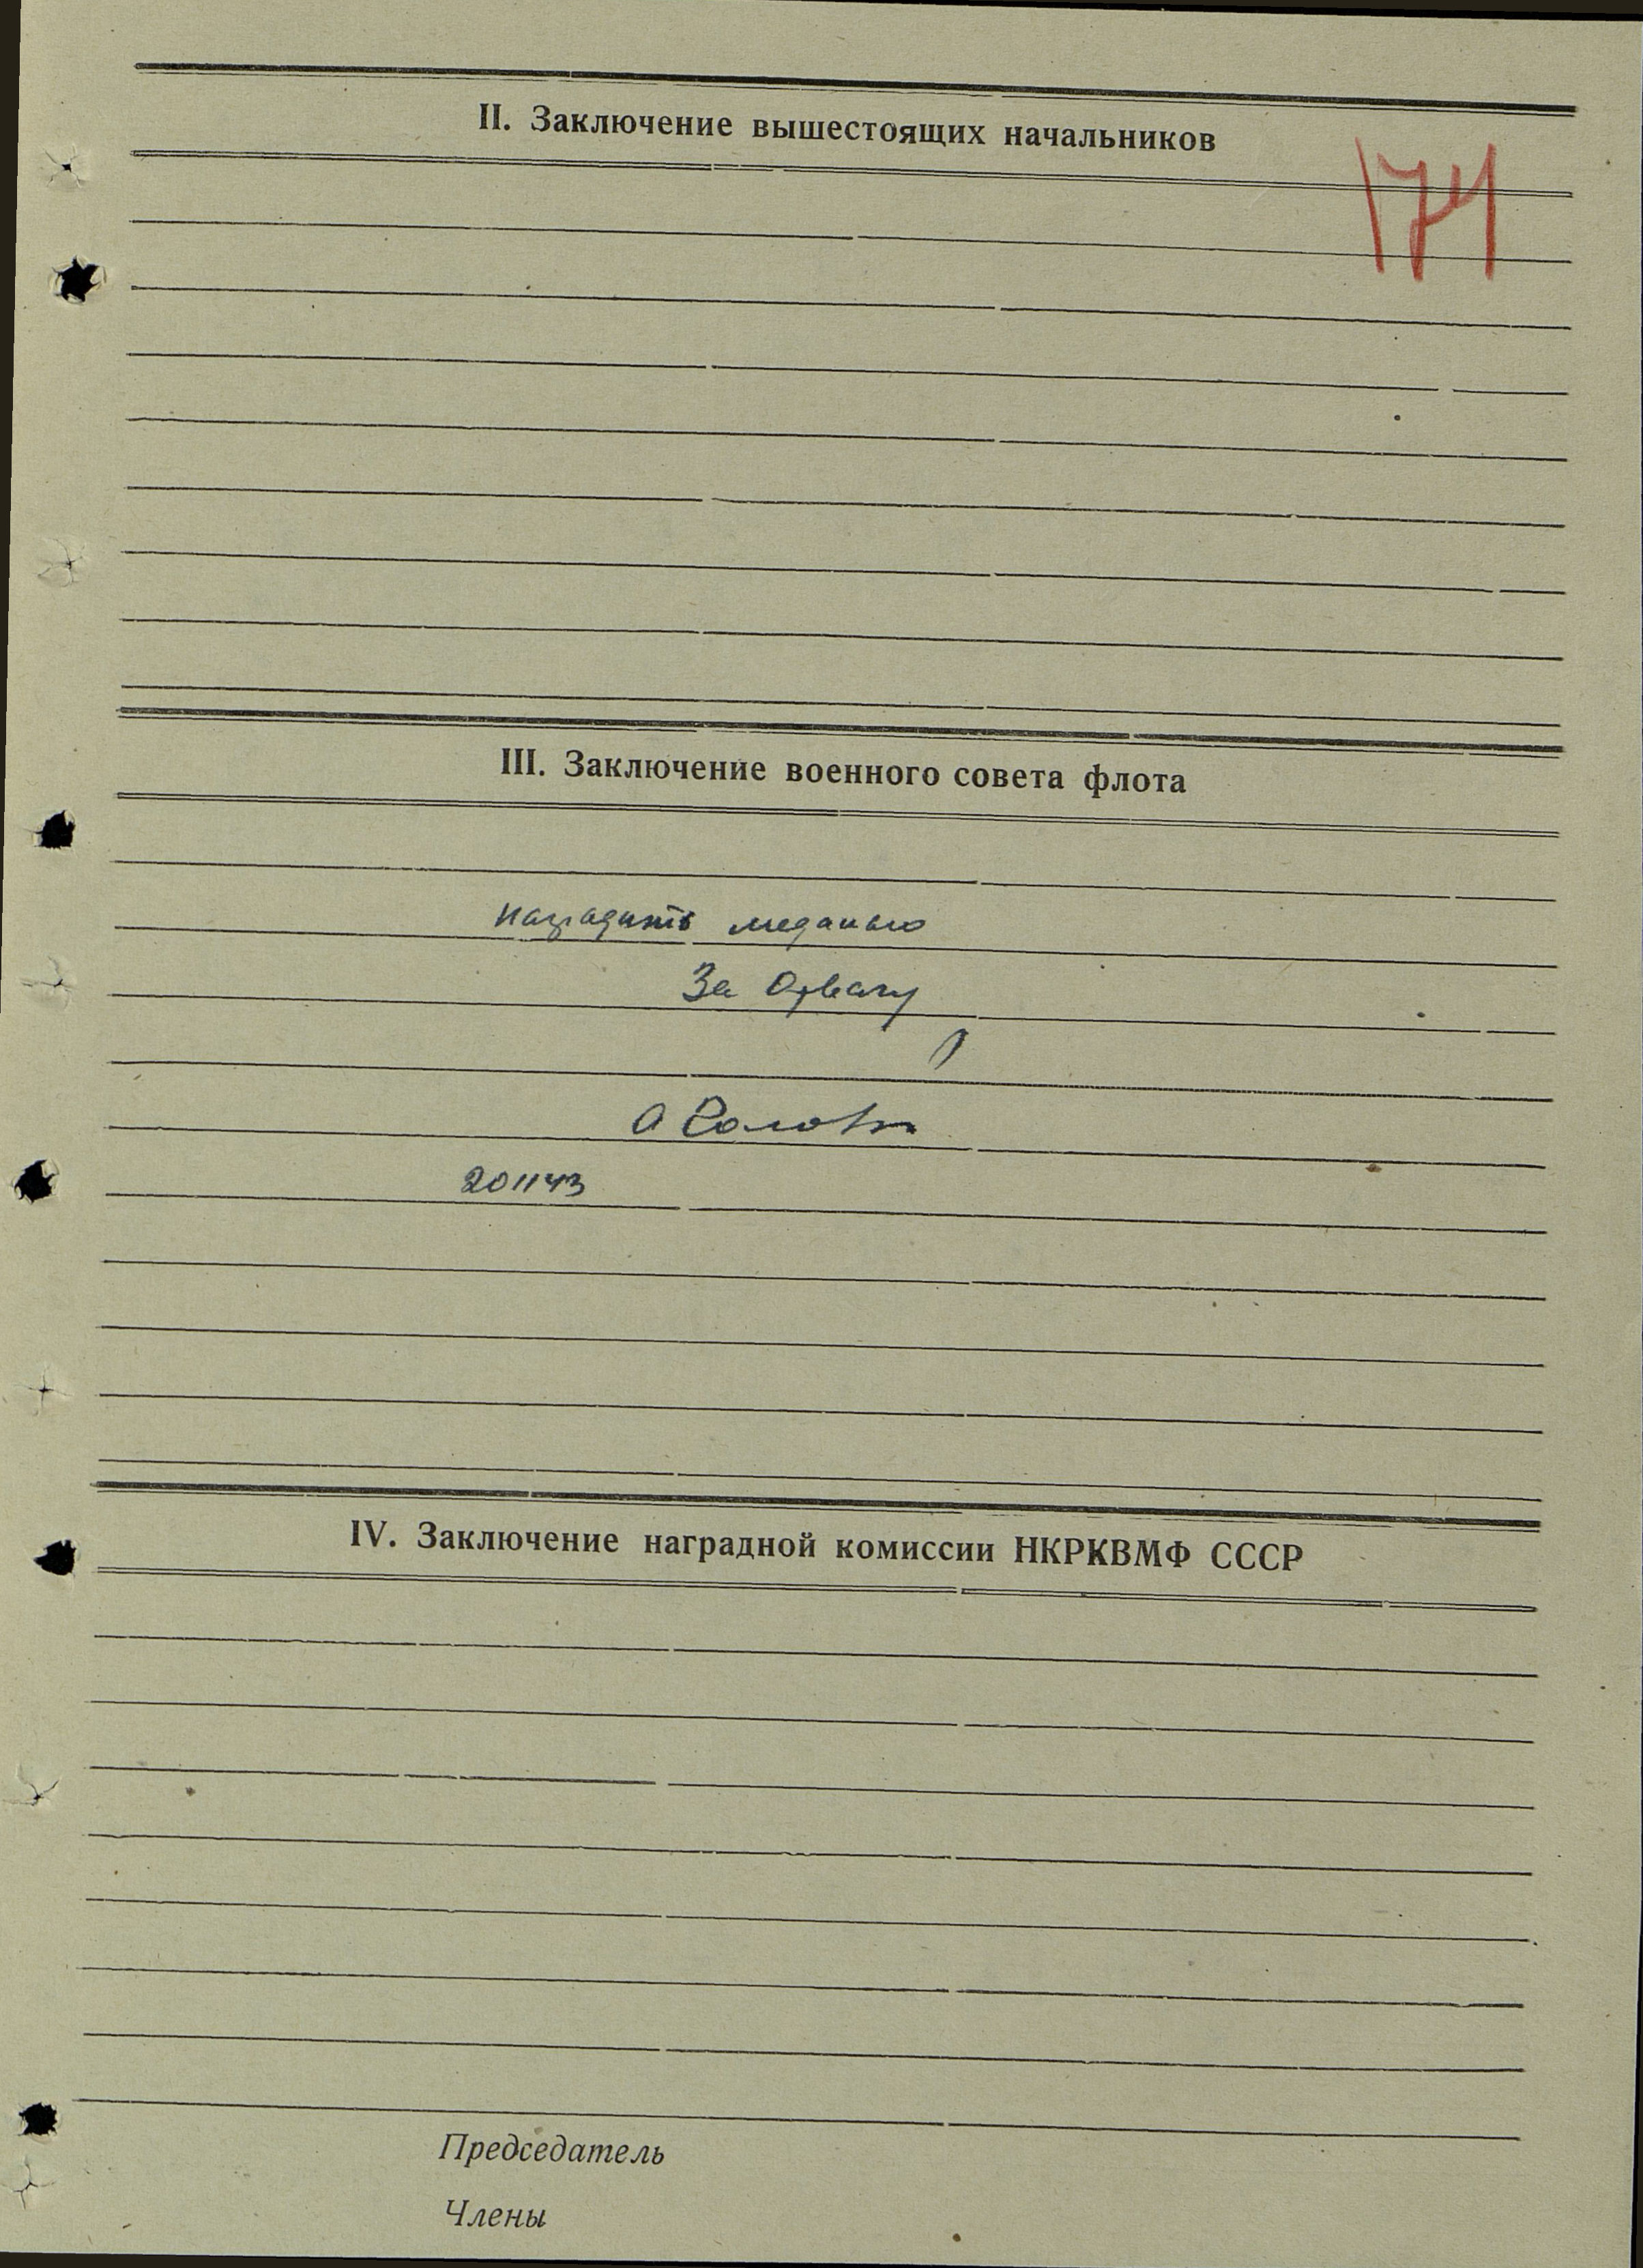 II. Заключение вышестоящих начальников
174
III. Заключение военного совета флота
наградить медалью
За Отвагу
201143
IV. Заключение наградной комиссии НКРКВМФ СССР
Председатель
Члены